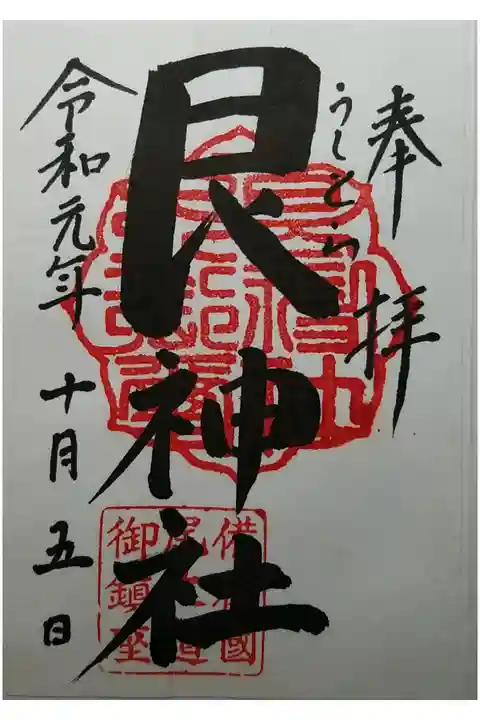 奉拝
うしとら
艮神社
令和元年
十月五日
備後國
尾道
御鎮座